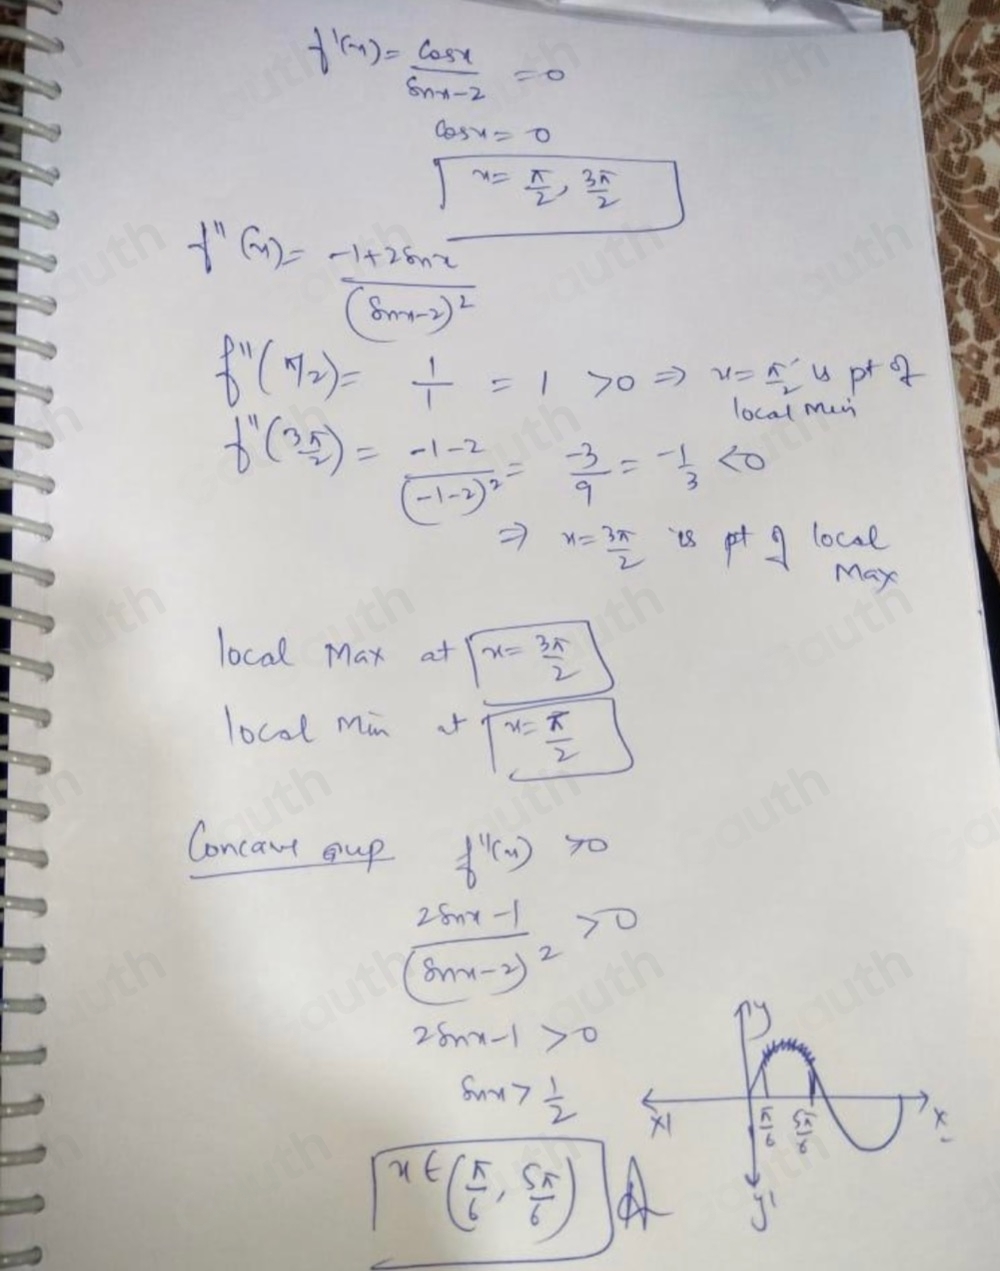 f'(x) = cosx / sinx-2 = 0
cosx = 0
x = π/2, 3π/2
f''(x) = -1+2sinx / (sinx-2)²
f''(π/2) = 1/1 = 1 >0 ⇒ x = π/2 is pt of
local min
f''(3π/2) = -1-2 / (-1-2)² = -3/9 = -1/3 <0
⇒ x = 3π/2 is pt of local
Max
local Max at x = 3π/2
local Min at x = π/2
Concave up f''(x) >0
2sinx-1 / (sinx-2)² >0
2sinx-1 >0
sinx > 1/2
x ∈ (π/6, 5π/6) A
y
x' π/6 5π/6 x
y'